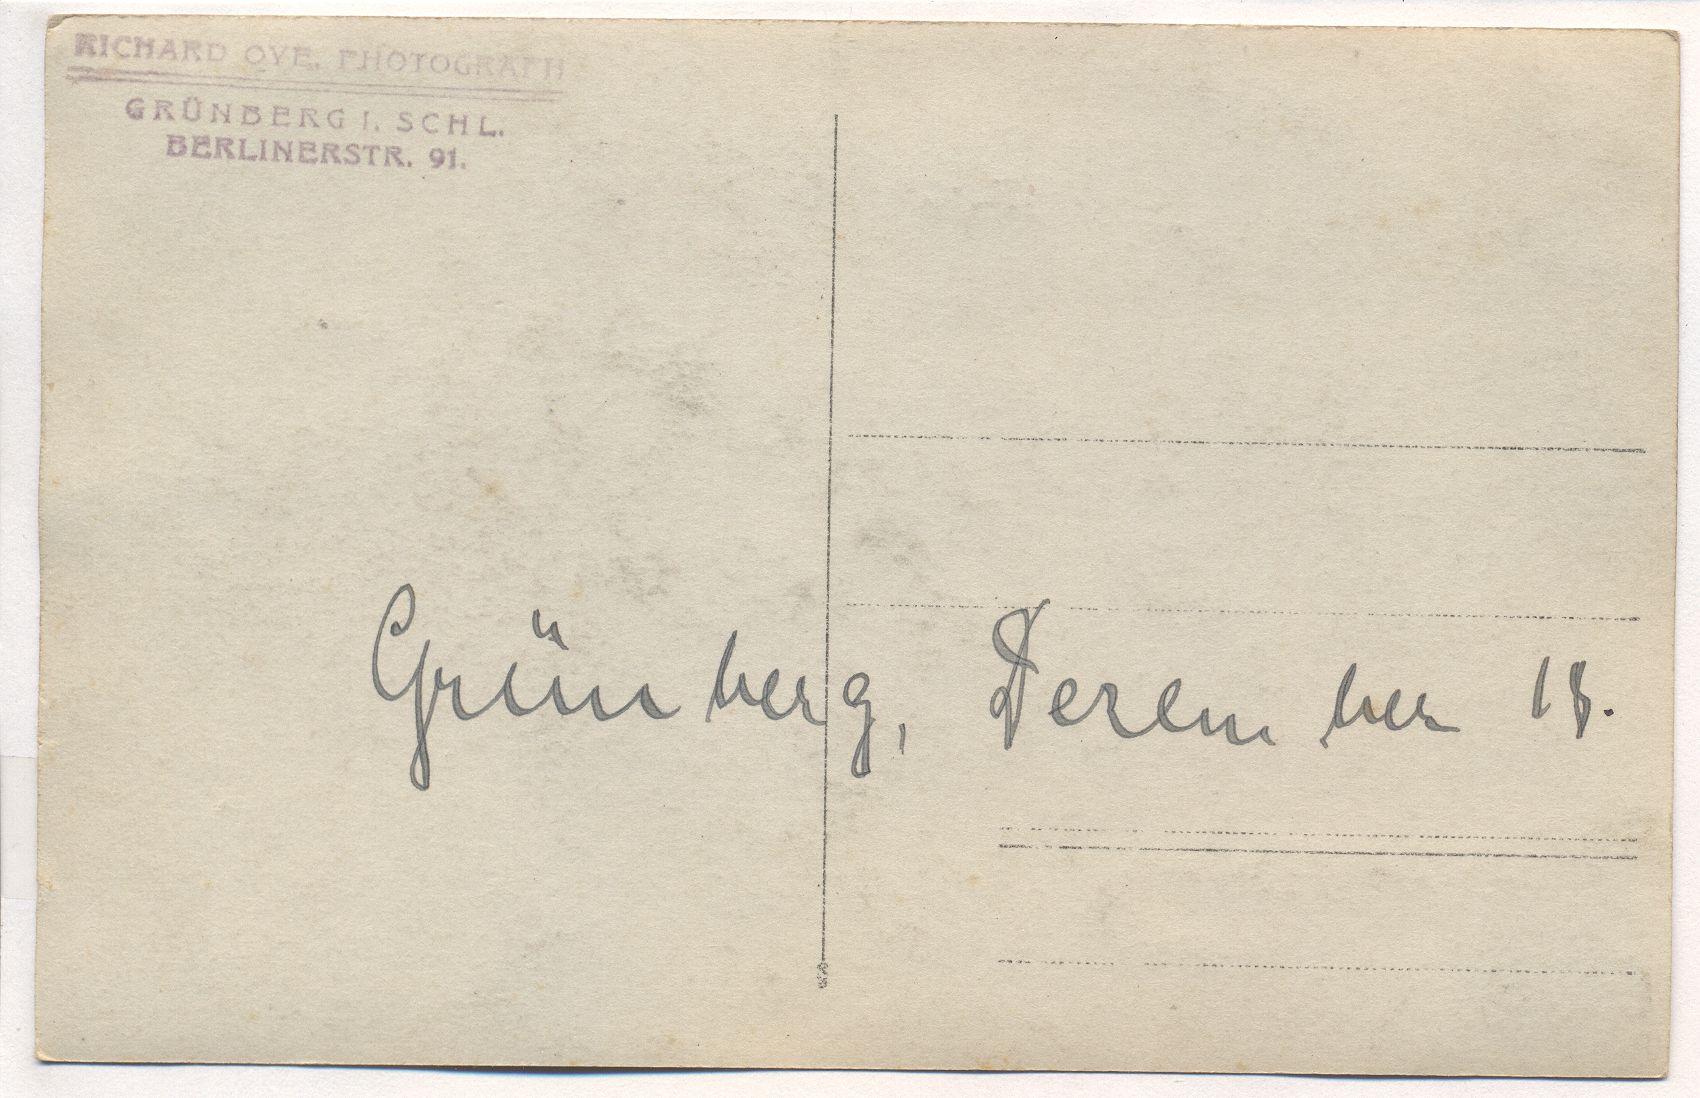 RICHARD OVE. PHOTOGRAPH
GRÜNBERG I. SCHL.
BERLINERSTR. 91.
Grünberg, Dezember 18.